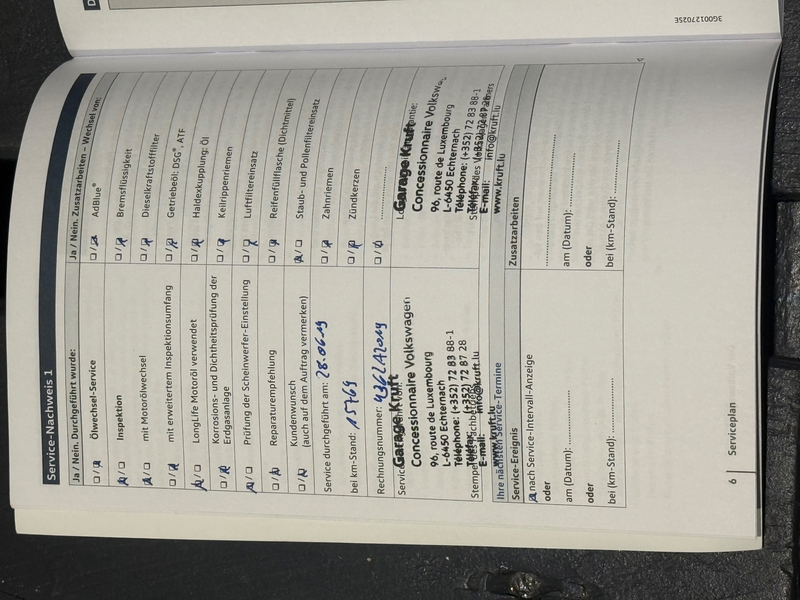 Service-Nachweis 1
Ja / Nein. Durchgeführt wurde:
Ölwechsel-Service
Inspektion
mit Motorölwechsel
mit erweitertem Inspektionsumfang
LongLife Motoröl verwendet
Korrosions- und Dichtheitsprüfung der
Erdgasanlage
Prüfung der Scheinwerfer-Einstellung
Reparaturempfehlung
Kundenwunsch
(auch auf dem Auftrag vermerken)
Service durchgeführt am: 28.06.19
bei km-Stand: 15769
Rechnungsnummer:
Garage Kruft
Concessionnaire Volkswagen
96, route de Luxembourg
L-6450 Echternach
Téléphone: (+352) 72 83 88-1
Téléfax: (+352) 72 87 28
E-mail: info@kruft.lu
www.kruft.lu
Ja / Nein. Zusatzarbeiten – Wechsel von:
AdBlue®
Bremsflüssigkeit
Dieselkraftstofffilter
Getriebeöl: DSG®, ATF
Haldexkupplung: Öl
Keilrippenriemen
Luftfiltereinsatz
Reifenfüllflasche (Dichtmittel)
Staub- und Pollenfiltereinsatz
Zahnriemen
Zündkerzen
Garage Kruft
Concessionnaire Volkswa
96, route de Luxembourg
L-6450 Echternach
Téléphone: (+352) 72 83 88-1
E-mail: info@kruft.lu
www.kruft.lu
Ihre nächsten Service-Termine
Service-Ereignis
nach Service-Intervall-Anzeige
oder
am (Datum):
oder
bei (km-Stand):
Zusatzarbeiten
am (Datum):
oder
bei (km-Stand):
6 Serviceplan
3G0012702SE